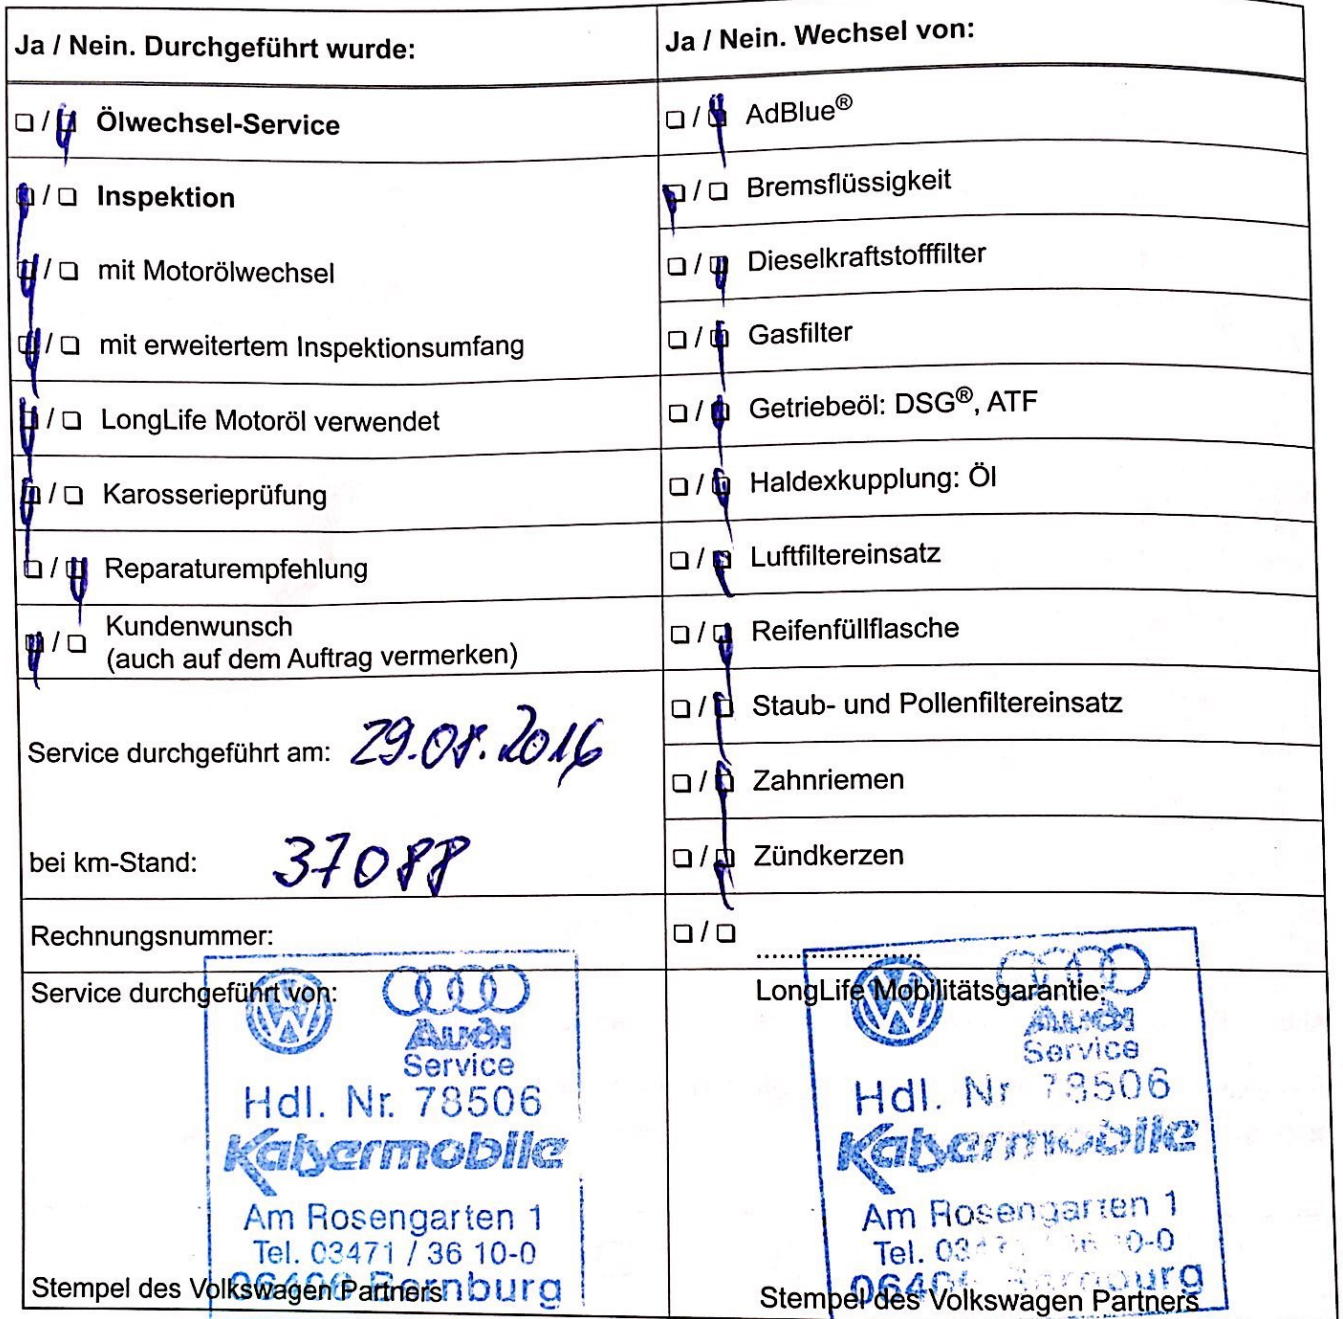 Ja / Nein. Durchgeführt wurde:
☐ / ☑ Ölwechsel-Service
☑ / ☐ Inspektion
☑ / ☐ mit Motorölwechsel
☑ / ☐ mit erweitertem Inspektionsumfang
☑ / ☐ LongLife Motoröl verwendet
☑ / ☐ Karosserieprüfung
☐ / ☑ Reparaturempfehlung
☑ / ☐ Kundenwunsch
(auch auf dem Auftrag vermerken)
Service durchgeführt am: 29.08.2016
bei km-Stand: 37088
Rechnungsnummer:
Service durchgeführt von:
VW
Audi
Service
Hdl. Nr. 78506
Kaisermobile
Am Rosengarten 1
Tel. 03471 / 36 10-0
06406 Bernburg
Stempel des Volkswagen Partners
Ja / Nein. Wechsel von:
☐ / ☑ AdBlue®
☑ / ☐ Bremsflüssigkeit
☐ / ☑ Dieselkraftstofffilter
☐ / ☑ Gasfilter
☐ / ☑ Getriebeöl: DSG®, ATF
☐ / ☑ Haldexkupplung: Öl
☐ / ☑ Luftfiltereinsatz
☐ / ☑ Reifenfüllflasche
☐ / ☑ Staub- und Pollenfiltereinsatz
☐ / ☑ Zahnriemen
☐ / ☑ Zündkerzen
☐ / ☐ ....................
LongLife Mobilitätsgarantie:
VW
Audi
Service
Hdl. Nr 78506
Kaisermobile
Am Rosengarten 1
Tel. 03471 / 36 10-0
06406 Bernburg
Stempel des Volkswagen Partners